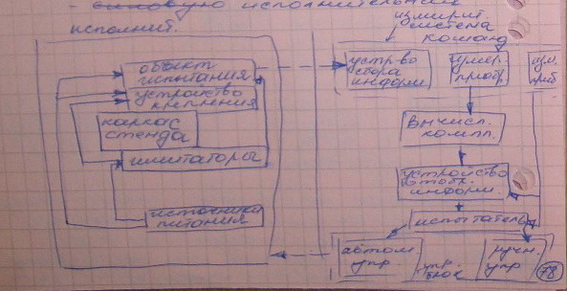 силовую исполнительной
исполнит.
измерит.
система
команд
объект
испытания
устройство
крепления
каркас
стенда
имитаторы
источники
питания
устр-во
сбора
информ.
измер.
прибр.
изм.
приб.
вычисл.
компл.
устройство
отобр.
информ.
испытатель
автом.
упр
упр.
блок
ручн.
упр
78